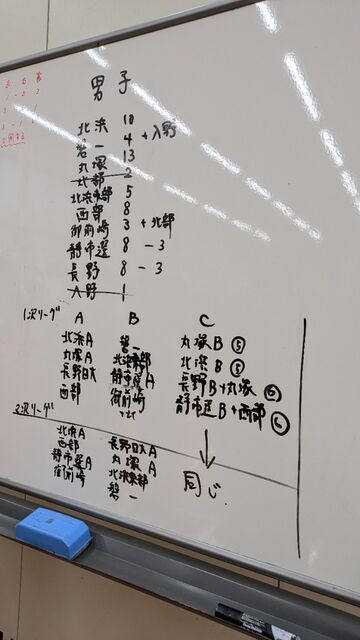 男子
北浜 10
磐一 4 +入野
丸塚 13
北部 2
北浜東部 5
西部 8
御前崎 3 +北部
静市選 8 -3
長野 8 -3
入野 1
1次リーグ
A B C
北浜A 磐一 丸塚B⑤
丸塚A 北浜東部 北浜B⑤
長野日大 静市選A 長野B+丸塚⑥
西部 御前崎 静市選B+西部⑥
2次リーグ
北浜A 長野日大A
西部 丸塚A 同じ
静市選A 北浜東部
御前崎 磐一